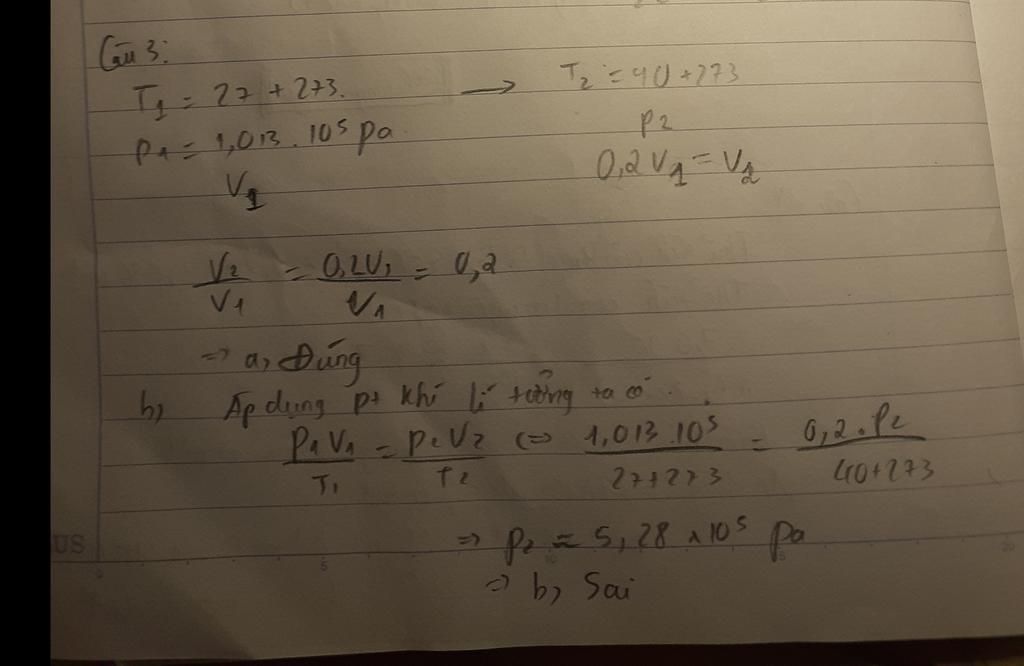 Câu 3:
T₁ = 27 + 273. → T₂ = 40 + 273
P₁ = 1,013 . 10⁵ pa P₂
V₁ 0,2V₁ = V₂
V₂/V₁ = 0,2V₁/V₁ = 0,2
=> a, Đúng
b, Áp dụng pt khí lí tưởng ta có :
P₁V₁/T₁ = P₂V₂/T₂ <=> 1,013.10⁵/27+273 = 0,2.P₂/40+273
=> P₂ = 5,28 x 10⁵ pa
=> b, Sai
US
0 5 10 5 20